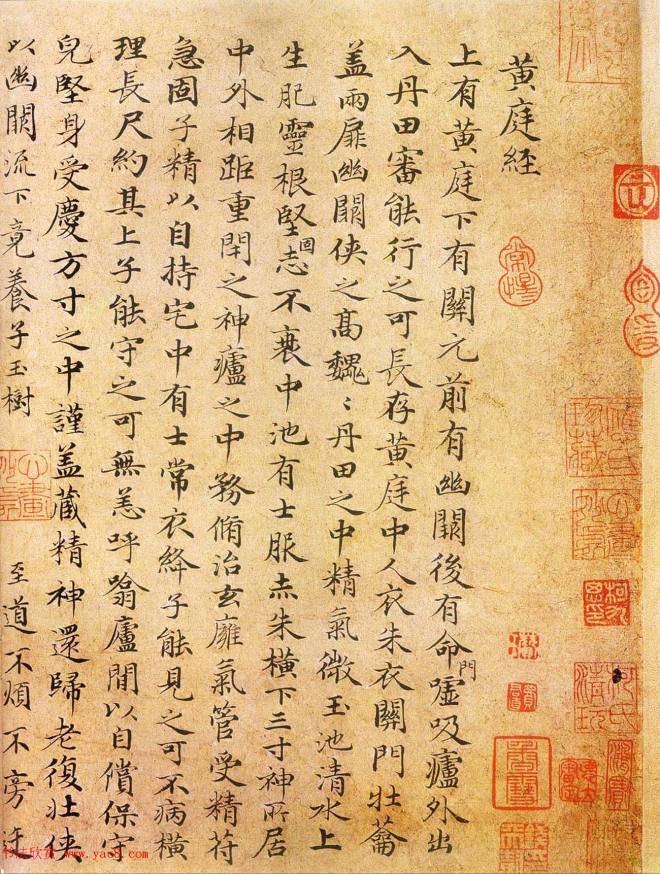 黄庭經
上有黄庭下有關元前有幽闕後有命門嘘吸廬外出
入丹田審能行之可長存黄庭中人衣朱衣關門壮蘥
盖兩扉幽闕俠之高魏〻丹田之中精氣微玉池清水上
生肥靈根堅固志不衰中池有士服赤朱橫下三寸神所居
中外相距重閇之神廬之中務脩治玄廱氣管受精苻
急固子精以自持宅中有士常衣絳子能見之可不病橫
理長尺約其上子能守之可無恙呼噏廬間以自償保守
皃堅身受慶方寸之中謹盖藏精神還歸老復壮俠
以幽闕流下竟養子玉樹 至道不煩不旁迕
书法欣赏 www.yac8.com